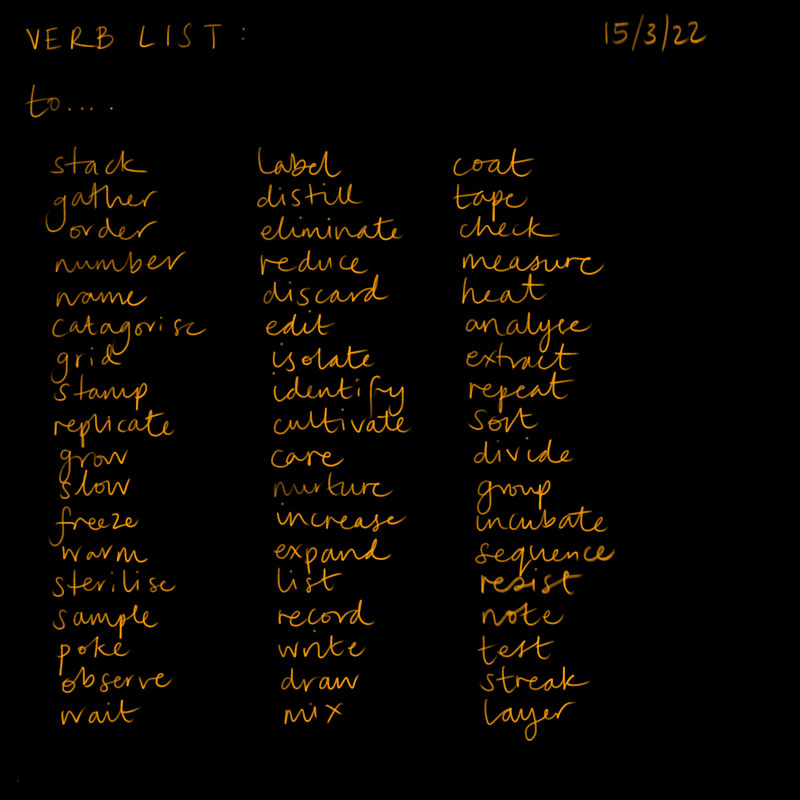 VERB LIST: 15/3/22
to....
stack label coat
gather distill tape
order eliminate check
number reduce measure
name discard heat
catagorise edit analyse
grid isolate extract
stamp identify repeat
replicate cultivate sort
grow care divide
slow nurture group
freeze increase incubate
warm expand sequence
sterilise list resist
sample record note
poke write test
observe draw streak
wait mix layer